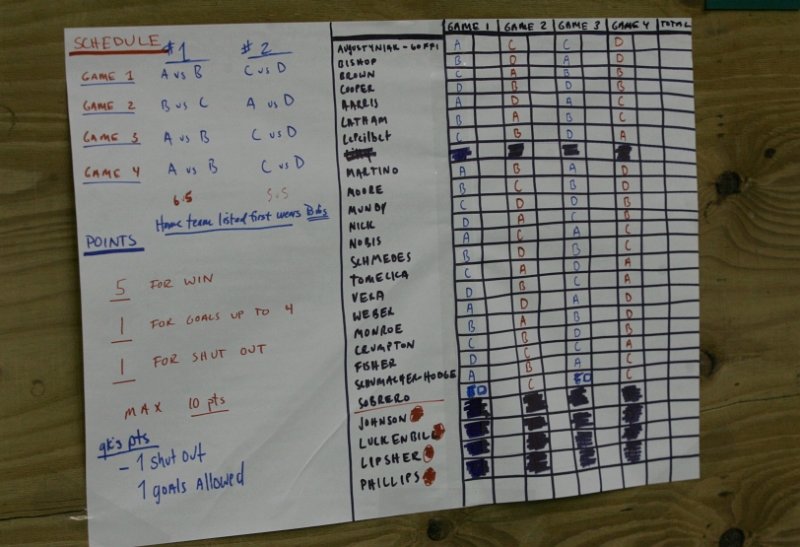 SCHEDULE #1 #2
GAME 1 A vs B C vs D
GAME 2 B vs C A vs D
GAME 3 A vs B C vs D
GAME 4 A vs B C vs D
6.5 5.5
Home team listed first wears Bibs
POINTS
5 FOR WIN
1 FOR GOALS UP TO 4
1 FOR SHUT OUT
MAX 10 pts
gk's pts
- 1 shut out
1 goals allowed
GAME 1 GAME 2 GAME 3 GAME 4 TOTAL
AUGUSTYNIAK - A C C D
BISHOP B D A D
BROWN C A B B
COOPER D B D B
HARRIS A D A C
LATHAM B A B C
C B D A
MARTINO A B A D
MOORE B C B D
MUNDY C D D B
NICK D A C B
NOBIS A C A C
SCHMEDES B D B C
TOMELKA C A D A
VERA D B C A
WEBER A D A D
MONROE B A B D
CRUMPTON C B D B
FISHER D C C A
SCHUMACHER-HODGE A B A C
SOBRERO D C D C
JOHNSON
LUCKENBILL
LIPSHER
PHILLIPS